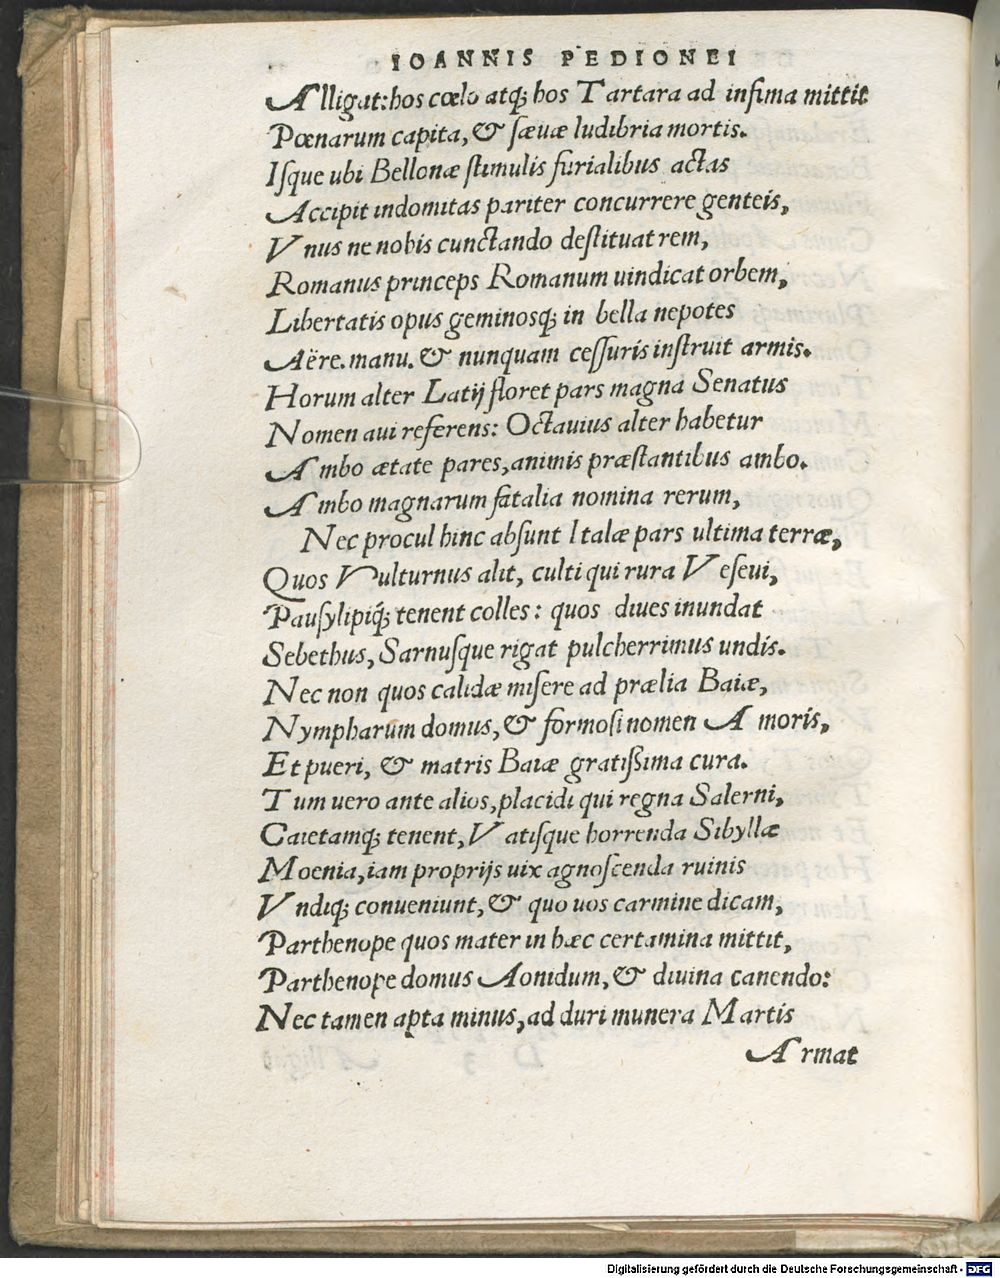 IOANNIS PEDIONEI
Alligat: hos cœlo atq; hos Tartara ad infima mittit
Pœnarum capita, & sæuæ ludibria mortis.
Isque ubi Bellonæ stimulis furialibus actas
Accipit indomitas pariter concurrere genteis,
Vnus ne nobis cunctando destituat rem,
Romanus princeps Romanum uindicat orbem,
Libertatis opus geminosq; in bella nepotes
Aëre. manu. & nunquam cessuris instruit armis.
Horum alter Latij floret pars magna Senatus
Nomen aui referens: Octauius alter habetur
Ambo ætate pares, animis præstantibus ambo.
Ambo magnarum fatalia nomina rerum,
Nec procul hinc absunt Italæ pars ultima terræ,
Quos Vulturnus alit, culti qui rura Veseui,
Pausylipiq́; tenent colles: quos diues inundat
Sebethus, Sarnusque rigat pulcherrimus undis.
Nec non quos calidæ misere ad prælia Baiæ,
Nympharum domus, & formosi nomen Amoris,
Et pueri, & matris Baiæ gratissima cura.
Tum uero ante alios, placidi qui regna Salerni,
Caietamq; tenent, Vatisque horrenda Sibyllæ
Moenia, iam proprijs uix agnoscenda ruinis
Vndiq; conueniunt, & quo uos carmine dicam,
Parthenope quos mater in hæc certamina mittit,
Parthenope domus Aonidum, & diuina canendo:
Nec tamen apta minus, ad duri munera Martis
Armat
Digitalisierung gefördert durch die Deutsche Forschungsgemeinschaft - DFG